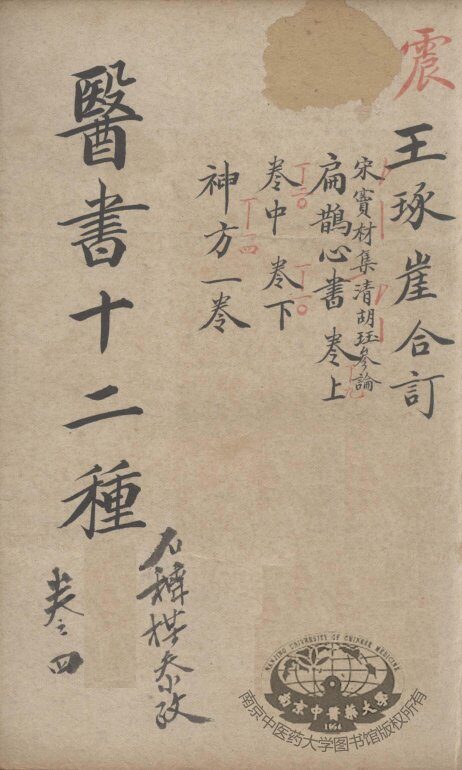 震
王琢崖合訂
宋竇材集清胡珏參論
扁鵲心書 卷上
卷中 卷下
神方一卷
醫書十二種
卷之四
NANJING UNIVERSITY OF CHINESE MEDICINE
南京中醫藥大學
1954
南京中医药大学图书馆版权所有